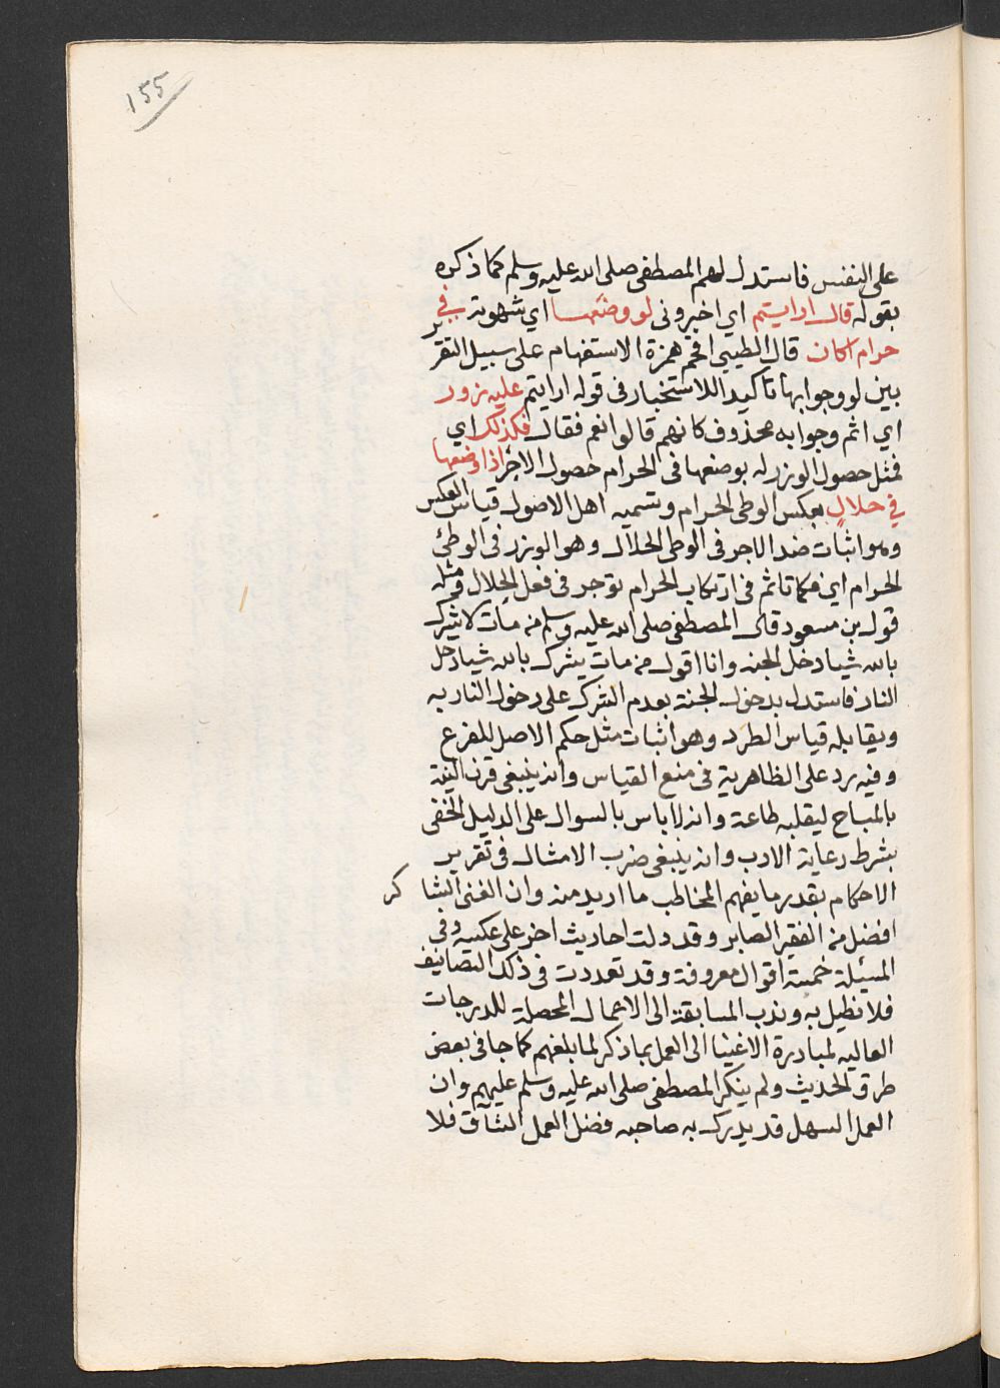 155
على النفس فاستدل لهم المصطفى صلى الله عليه وسلم كما ذكره
بقوله قال ارايتم اي اخبروني لو وضعها اي شهوته في
حرام اكان قال الطيبي اقحم همزة الاستفهام على سبيل التقرير
بين لو وجوابها تاكيدا للاستخبار في قوله ارايتم عليه وزر
اي اثم وجوابه محذوف كانهم قالوا نعم فقال فكذلك اي
فمثل حصول الوزر له بوضعها في الحرام حصول الاجر اذا وضعها
في حلال بعكس الوطى الحرام وتسميه اهل الاصول قياس العكس
وهو اثبات ضد الاجر في الوطى الحلال وهو الوزر في الوطئ
الحرام اي فكما تاثم في ارتكاب الحرام توجر في فعل الحلال ومثله
قول بن مسعود قال المصطفى صلى الله عليه وسلم من مات لا يشرك
بالله شيا دخل الجنه وانا اقول من مات يشرك بالله شيا دخل
النار فاستدل بدخول الجنة بعدم الشرك على دخول النار به
ويقابله قياس الطرد وهو اثبات مثل حكم الاصل للفرع
وفيه رد على الظاهرية في منع القياس وانه ينبغي قرن النية
بالمباح ليقلبه طاعة وانه لا باس بالسوال على الدليل الخفى
بشرط رعاية الادب وانه ينبغي ضرب الامثال في تقرير
الاحكام بقدر ما يفهم المخاطب ما اريد منه وان الغنى الشاكر
افضل من الفقير الصابر وقد دلت احاديث اخر على عكسه وفي
المسئلة خمسة اقوال معروفة وقد تعددت في ذلك التصانيف
فلا نطيل به وندب المسابقة الى الاعمال المحصلة للدرجات
العاليه لمبادرة الاغنيا الى العمل بما ذكر لما بلغهم كما جا في بعض
طرق الحديث ولم ينكر المصطفى صلى الله عليه وسلم عليهم وان
العمل السهل قد يدرك به صاحبه فضل العمل الشاق فلا